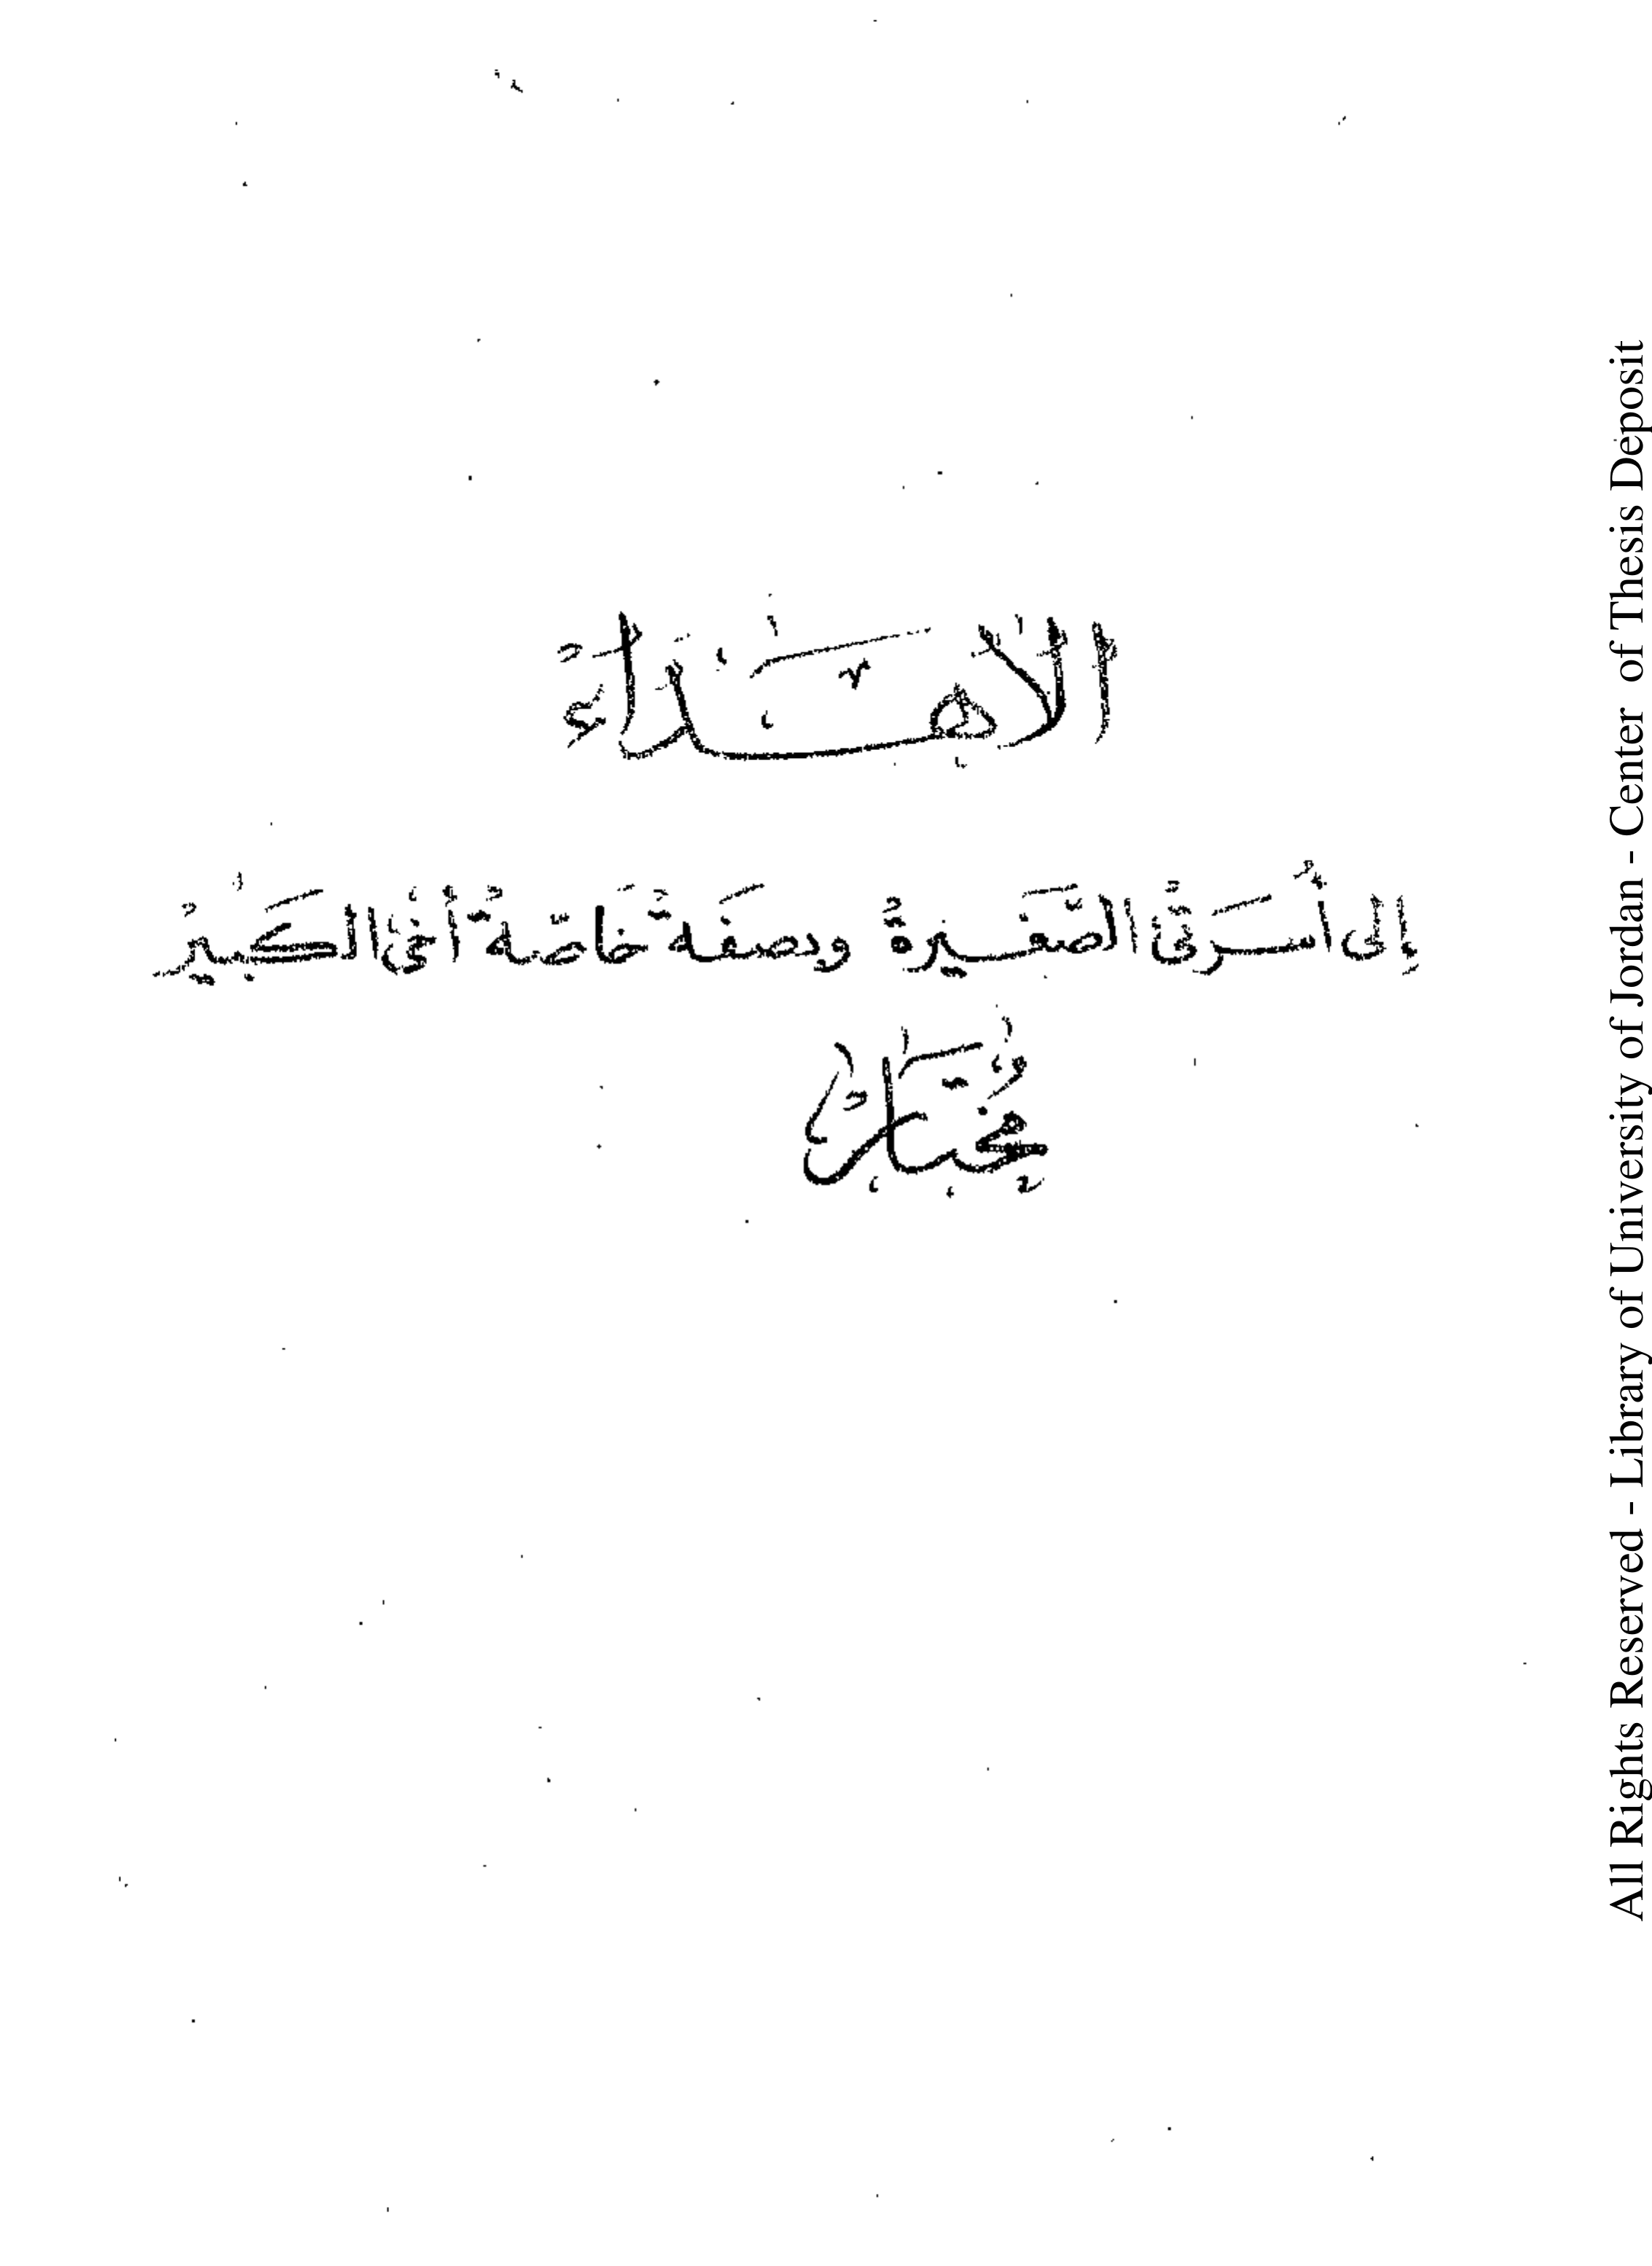 الاهداء
إلى أسرتي الصغيرة وبصفة خاصة أخي الكبير
مختار
All Rights Reserved - Library of University of Jordan - Center of Thesis Deposit